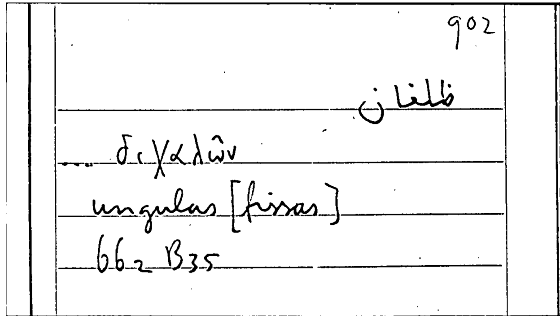 902
ظلفان
.... διχαλῶν
ungulas [fissas]
662 B35